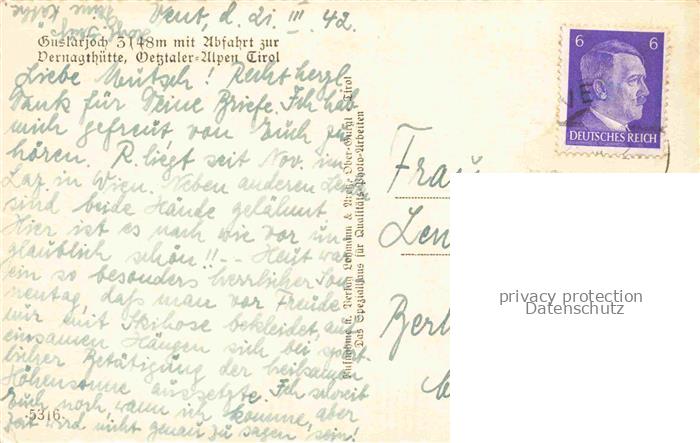 Vent, d. 21. III. 42.
Guslarjoch 3148m mit Abfahrt zur
Vernagthütte, Oetztaler-Alpen Tirol
Liebe Mutsch! Recht herzl.
Dank für Deine Briefe. Ich hab
mich gefreut von Euch zu
hören. R. liegt seit Nov. im
Laz. in Wien. Neben anderen
sind beide Hände gelähmt
Hier ist es nach wie vor un-
glaublich schön!! -- Heut war
ein so besonders herrlicher Son-
nentag, daß man vor Freude,
nur mit Skihose bekleidet, an
einsamen Hängen sich bei sport-
licher Betätigung der heilsamen
Höhensonne aussetzte. Ich schreib
Euch noch, wann ich komme, aber
Zeit wird nicht genau zu sagen sein!
5316
Aufnahme u. Verlag Lohmann & Ober-Gurgl Tirol
Das Spezialhaus für Qualitäts-Photo-Arbeiten
6 6
DEUTSCHES REICH
Frau
Len
Berl
privacy protection
Datenschutz